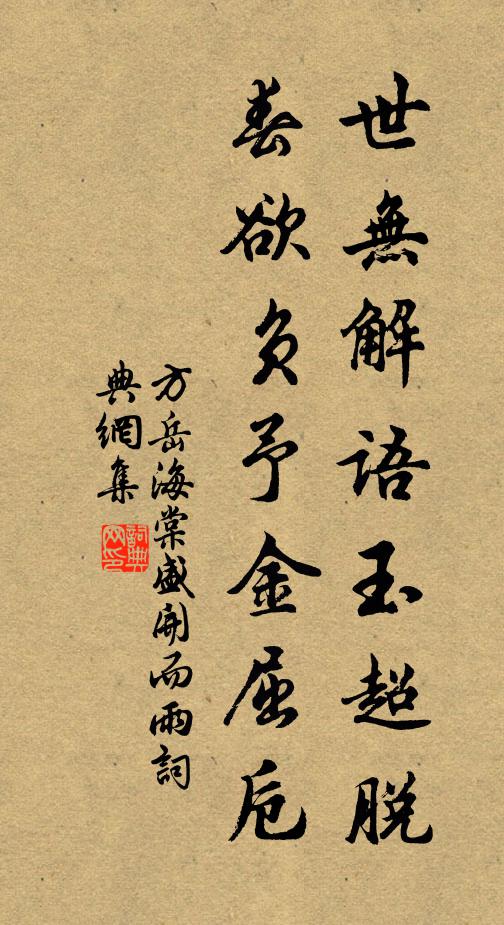 世無解語玉超脱
春欲負予金屈卮
方岳海棠盛開而雨詞
典網集
詞典網印